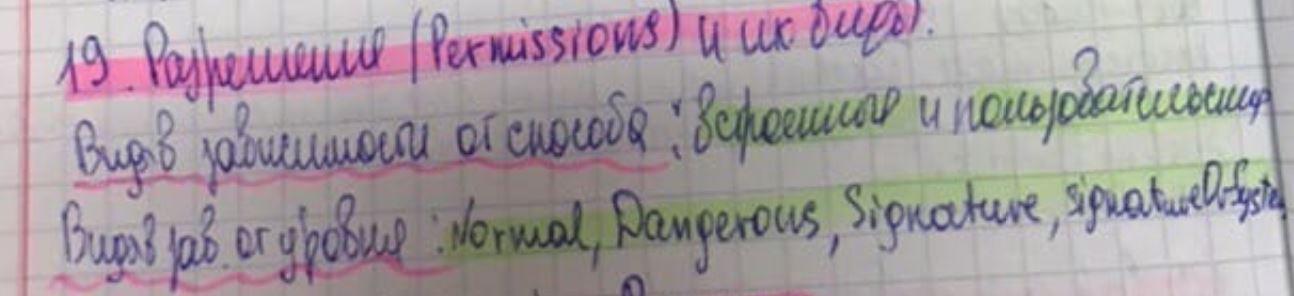 19. Разрешения (Permissions) и их виды.
Виды в зависимости от способа: Встроенные и пользовательские
Виды в зав. от уровня: Normal, Dangerous, Signature, signatureOrSystem